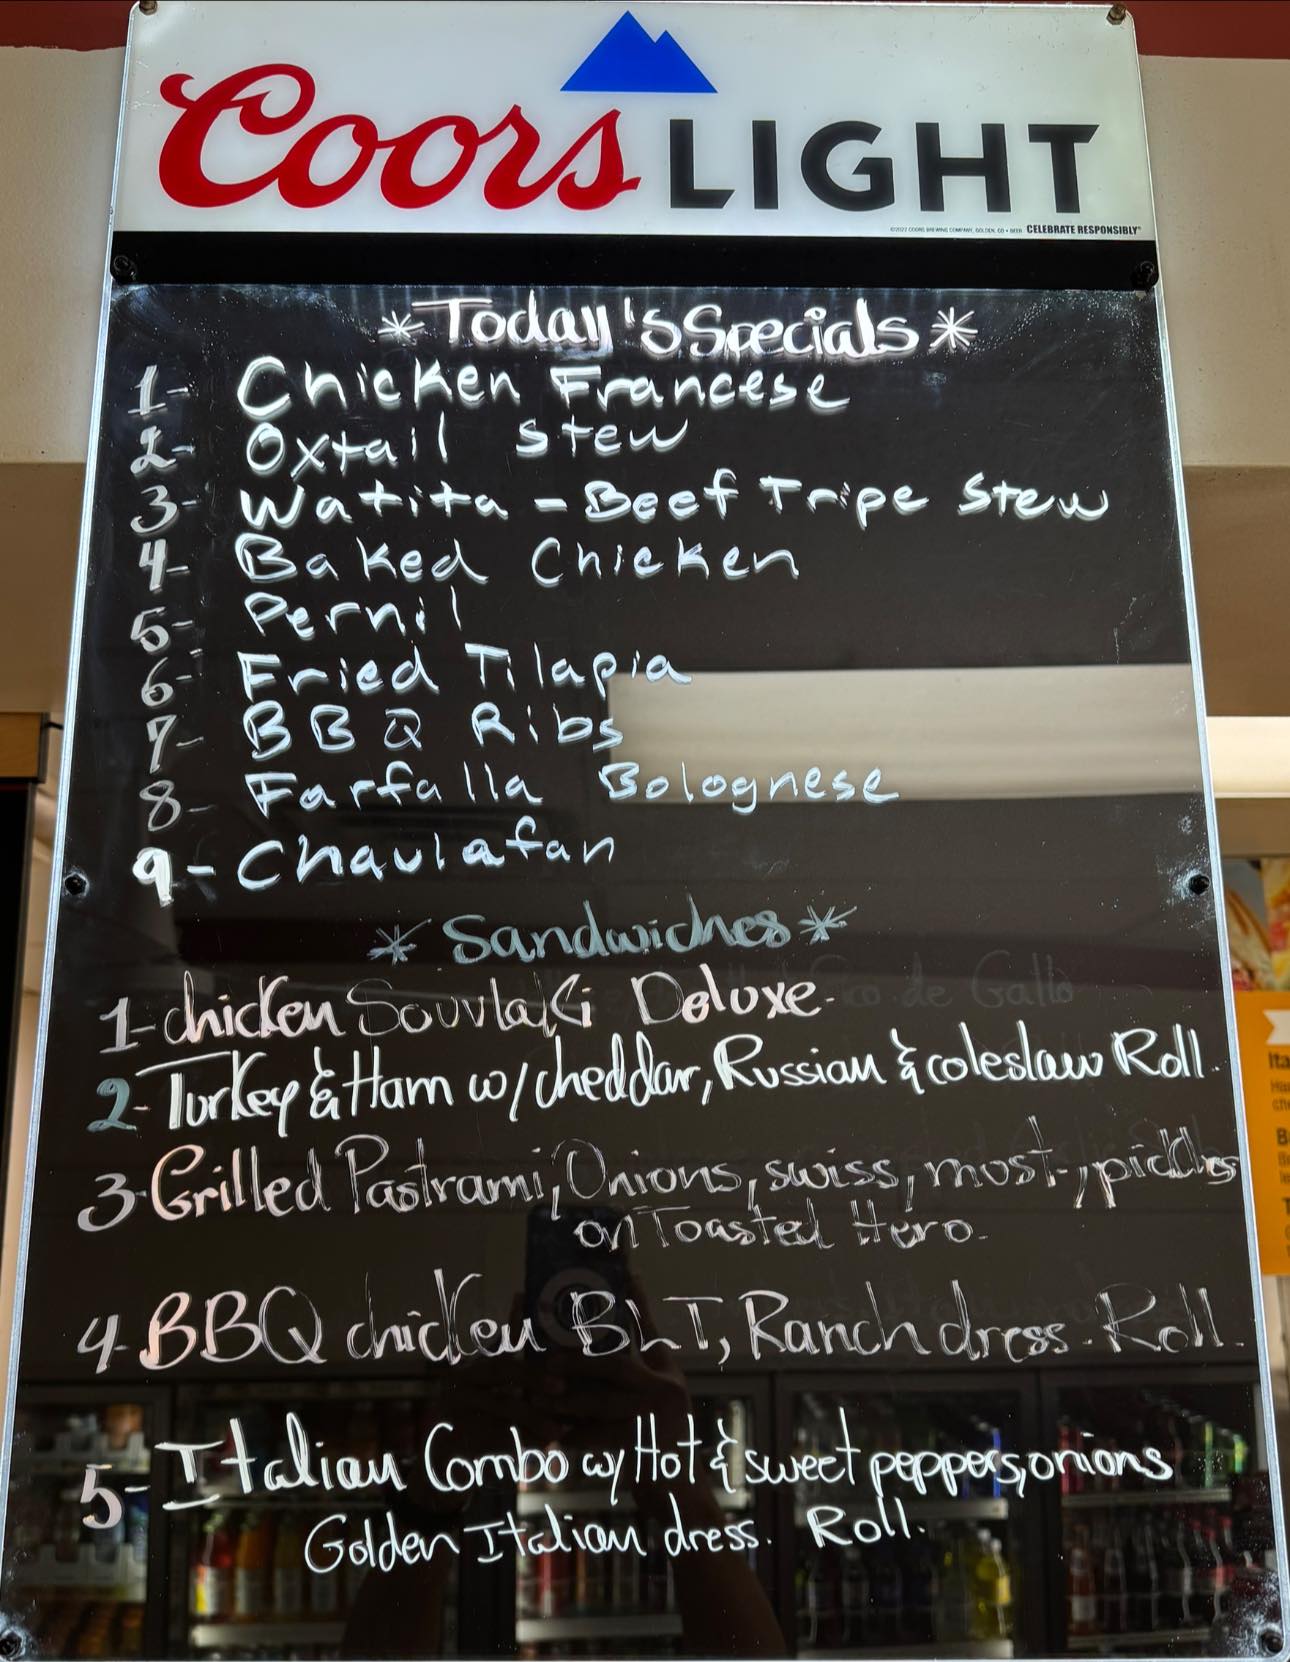 Coors LIGHT
©2022 COORS BREWING COMPANY, GOLDEN, CO • BEER CELEBRATE RESPONSIBLY®
* Today's Specials *
1- Chicken Francese
2- Oxtail Stew
3- Watita - Beef Tripe Stew
4- Baked Chicken
5- Pernil
6- Fried Tilapia
7- BBQ Ribs
8- Farfalla Bolognese
9- Chaulafan
* Sandwiches *
1- chicken Souvlaki Deluxe.
2- Turkey & Ham w/ cheddar, Russian & coleslaw Roll.
3- Grilled Pastrami, Onions, swiss, must-, pickles
on Toasted Hero.
4- BBQ chicken BLT, Ranch dress. Roll.
5- Italian Combo w/ Hot & sweet peppers, onions
Golden Italian dress. Roll.
Ita